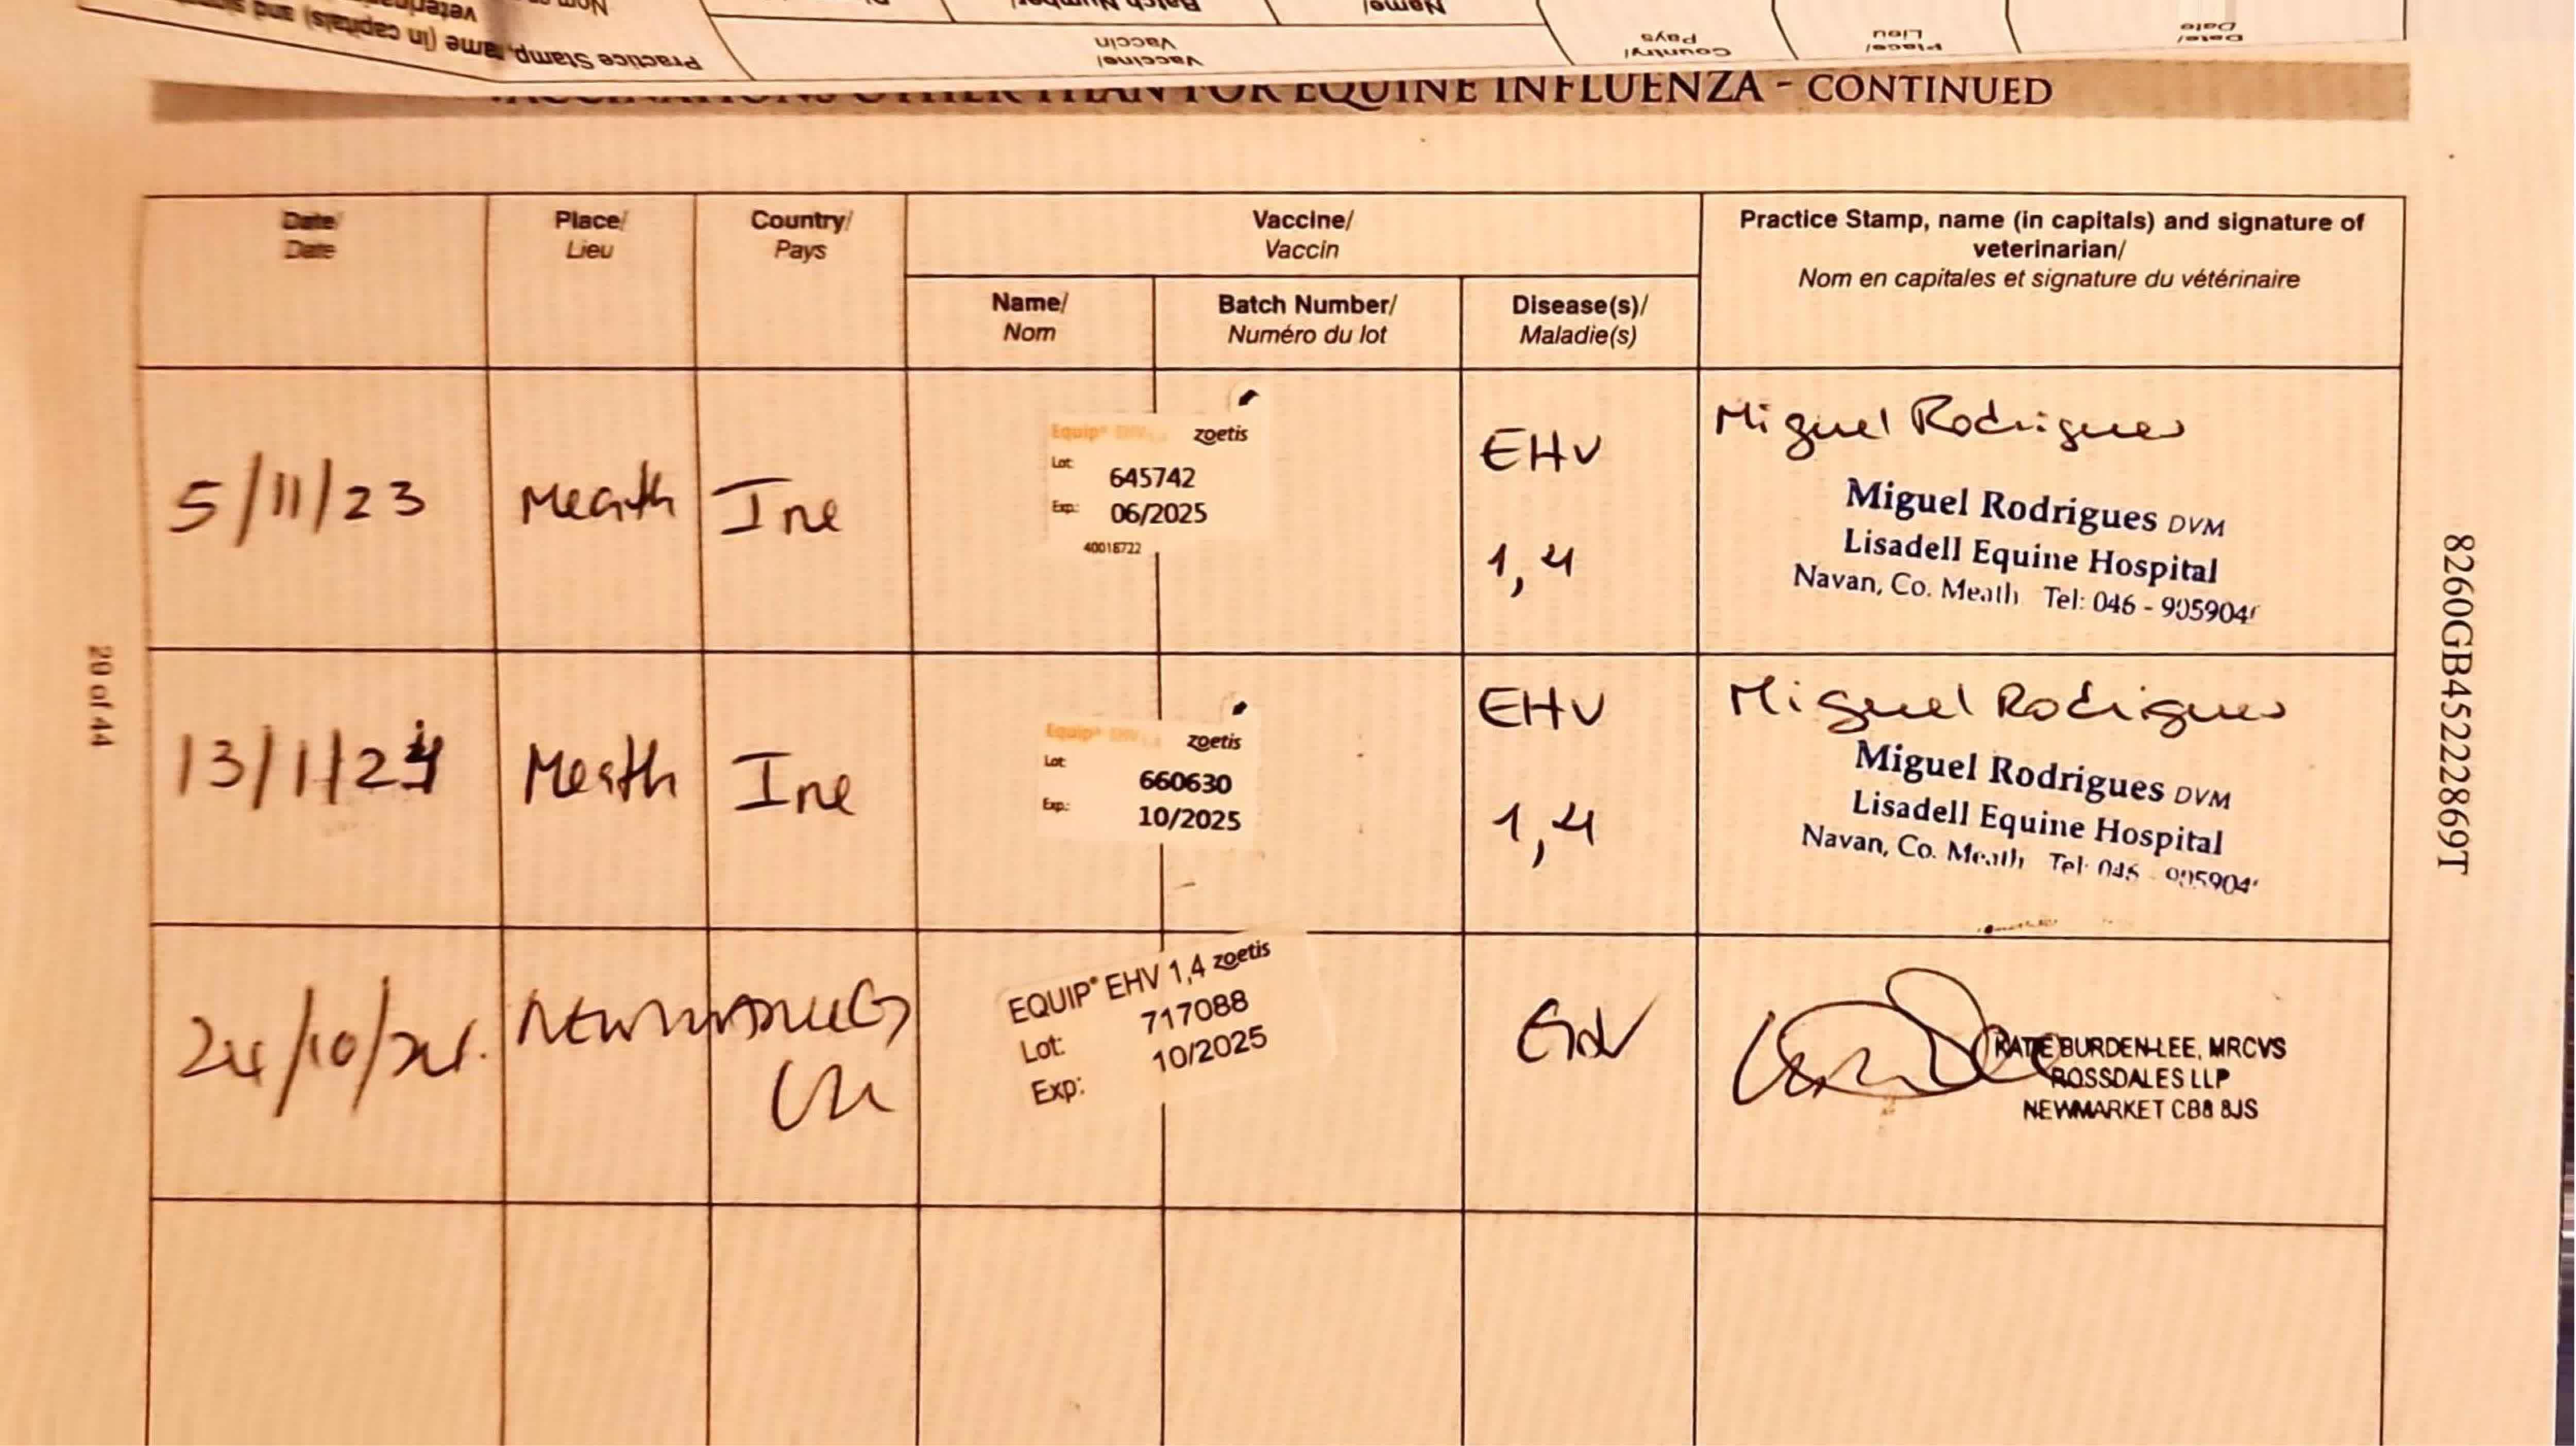 Practice Stamp, name (in capitals) and
Vaccine/
Vaccin
Country/
Pays
Place/
Lieu
Date/
Date
Name/
Batch Number/
Nom
THAN FOR EQUINE INFLUENZA - CONTINUED
Date/
Date
Place/
Lieu
Country/
Pays
Vaccine/
Vaccin
Name/
Nom
Batch Number/
Numéro du lot
Disease(s)/
Maladie(s)
Practice Stamp, name (in capitals) and signature of
veterinarian/
Nom en capitales et signature du vétérinaire
5/11/23
Meath
Ire
Equip® EHV zoetis
Lot: 645742
Exp.: 06/2025
40018722
EHV
1,4
Miguel Rodrigues
Miguel Rodrigues DVM
Lisadell Equine Hospital
Navan, Co. Meath Tel: 046 - 905904
13/1/24
Meath
Ire
Equip® EHV zoetis
Lot: 660630
Exp.: 10/2025
EHV
1,4
Miguel Rodrigues
Miguel Rodrigues DVM
Lisadell Equine Hospital
Navan, Co. Meath Tel: 046 - 905904
24/10/24.
NEWMARKET
UK
EQUIP® EHV 1,4 zoetis
Lot: 717088
Exp: 10/2025
EHV
KATIE BURDEN-LEE, MRCVS
ROSSDALES LLP
NEWMARKET CB8 8JS
20 of 44
8260GB45222869T